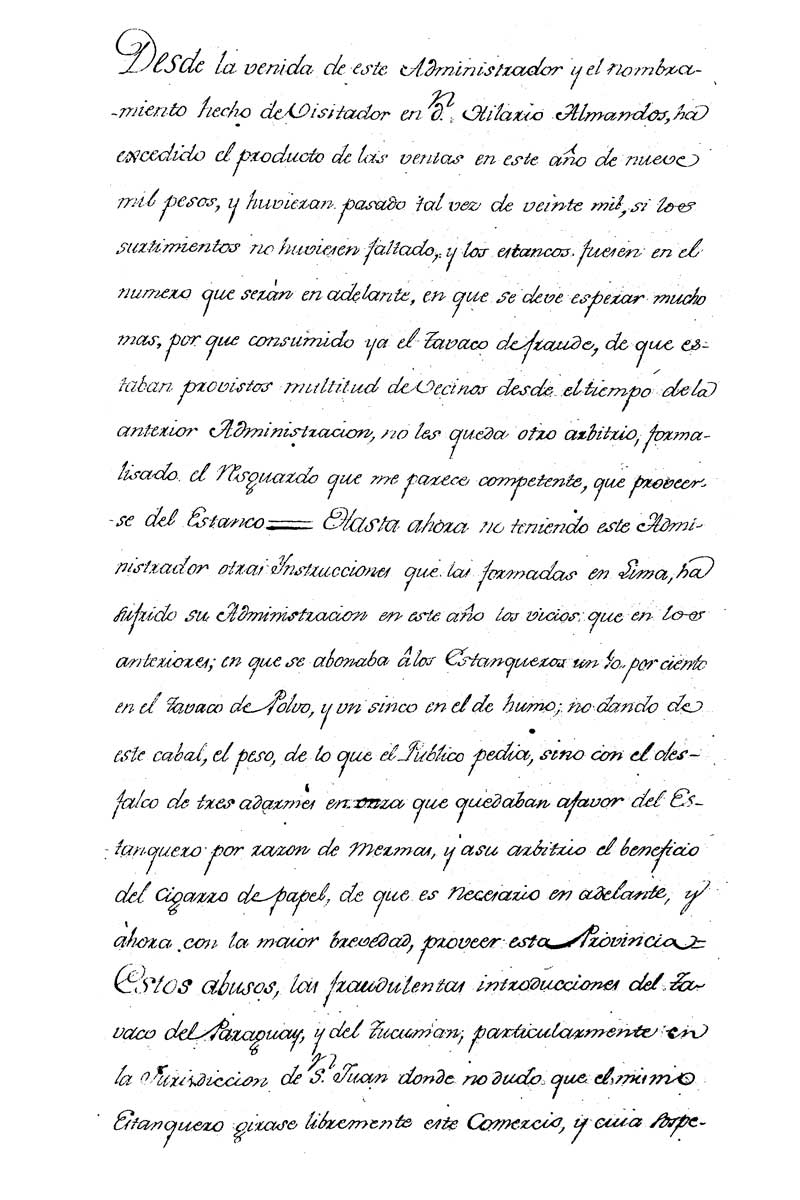 Desde la venida de este Administrador y el nombra-
-miento hecho de Visitador en dn. Hilario Almandos, ha
excedido el producto de las ventas en este año de nueve
mil pesos, y huvieran pasado tal vez de veinte mil, si los
surtimientos no huviesen faltado, y los estancos fuesen en el
numero que serán en adelante, en que se deve esperar mucho
mas, por que consumido ya el tavaco de fraude, de que es=
taban provistos multitud de Vecinos desde el tiempo de la
anterior Administracion, no les queda otro arbitrio, forma-
lisado el Resguardo que me parece competente, que proveer-
-se del Estanco == Hasta ahora no teniendo este Admi-
nistrador otras Instrucciones que las formadas en Lima, ha
sufrido su Administracion en este año los vicios que en los
anteriores; en que se abonaba â los Estanqueros un 10. por ciento
en el tavaco de Polvo, y un sinco en el de humo; no dando de
este cabal, el peso, de lo que el Publico pedia, sino con el des-
falco de tres adarmes en onza que quedaban a favor del Es-
tanquero por razon de Mermas, y à su arbitrio el beneficio
del Cigarro de papel, de que es necesario en adelante, y
àhora con la maior brevedad, proveer esta Provincia =
Estos abusos, las fraudulentas introducciones del ta-
vaco del Paraguay, y del Tucuman, particularmente en
la Jurisdiccion de Sn. Juan donde no dudo que el mismo
Estanquero girase libremente este Comercio, y cuia sospe-